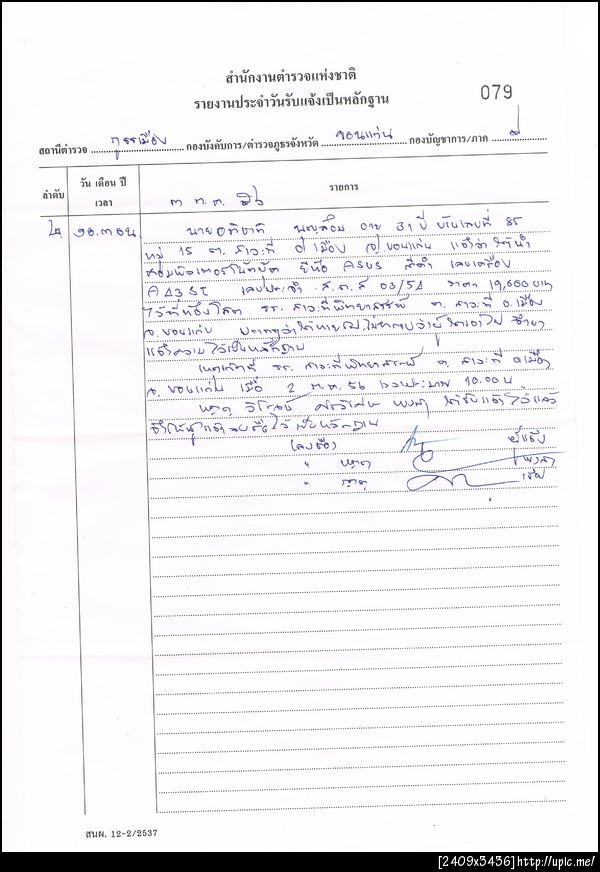 สำนักงานตำรวจแห่งชาติ
รายงานประจำวันรับแจ้งเป็นหลักฐาน
079
สถานีตำรวจ ภูธรเมือง กองบังคับการ/ตำรวจภูธรจังหวัด ขอนแก่น กองบัญชาการ/ภาค
ลำดับ
วัน เดือน ปี
เวลา
รายการ
๓ ต.ค. ๕๖
๑๐.๓๐น
อายุ 31 ปี บ้านเลขที่ 85
หมู่ 15 ต. สาวะถี อ เมือง จ ขอนแก่น แจ้งว่าได้นำ
คอมพิวเตอร์โน้ตบุ๊ค ยี่ห้อ ASUS สีดำ เลขเครื่อง
A43SE 03/54 ราคา 19,600 บาท
ไว้ที่ห้องโสต รร. สาวะถีพิทยาสรรพ์ ต. สาวะถี อ.เมือง
จ. ขอนแก่น ปรากฏว่าได้หายไป ไม่ทราบว่าผู้ใดเอาไป จึงมา
แจ้งความไว้เป็นหลักฐาน
เหตุเกิดที่ รร. สาวะถีพิทยาสรรพ์ ต. สาวะถี อ เมือง
จ. ขอนแก่น เมื่อ 2 ต.ค. 56 เวลาประมาณ 10.00 น.
ได้รับแจ้งไว้แล้ว
ไว้เป็นหลักฐาน
(ลงชื่อ) ผู้แจ้ง
สนผ. 12-2/2537
[2409x3436]http://upic.me/